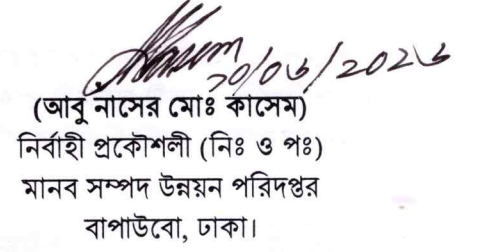 ২০/০৬/২০২৬
(আবু নাসের মোঃ কাসেম)
নির্বাহী প্রকৌশলী (নিঃ ও পঃ)
মানব সম্পদ উন্নয়ন পরিদপ্তর
বাপাউবো, ঢাকা।